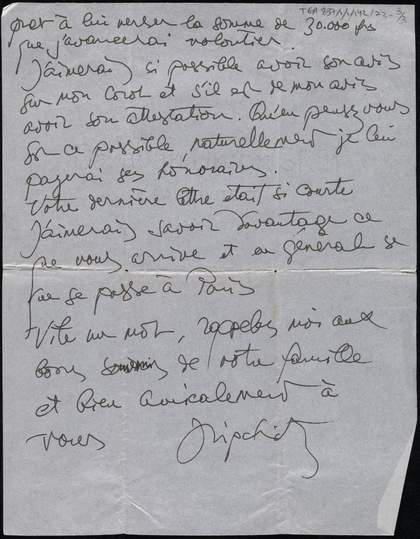 TGA 851/1/1/142/22-3/3
pret à lui verser la somme de 30.000 frs
que j'avancerai volontier.
J'aimerais si possible avoir son avis
sur mon Corot et s'il est de mon avis
avoir son attestation. Qu'en pensez vous
est ce possible, naturellement je lui
payerai ses honoraires.
Votre dernière lettre était si courte
J'aimerais savoir davantage ce
que vous arrive et en général ce
que se passe à Paris
Vite un mot, rappelez moi aux
bons souvenirs de votre famille
et bien amicalement à
vous Lipchitz